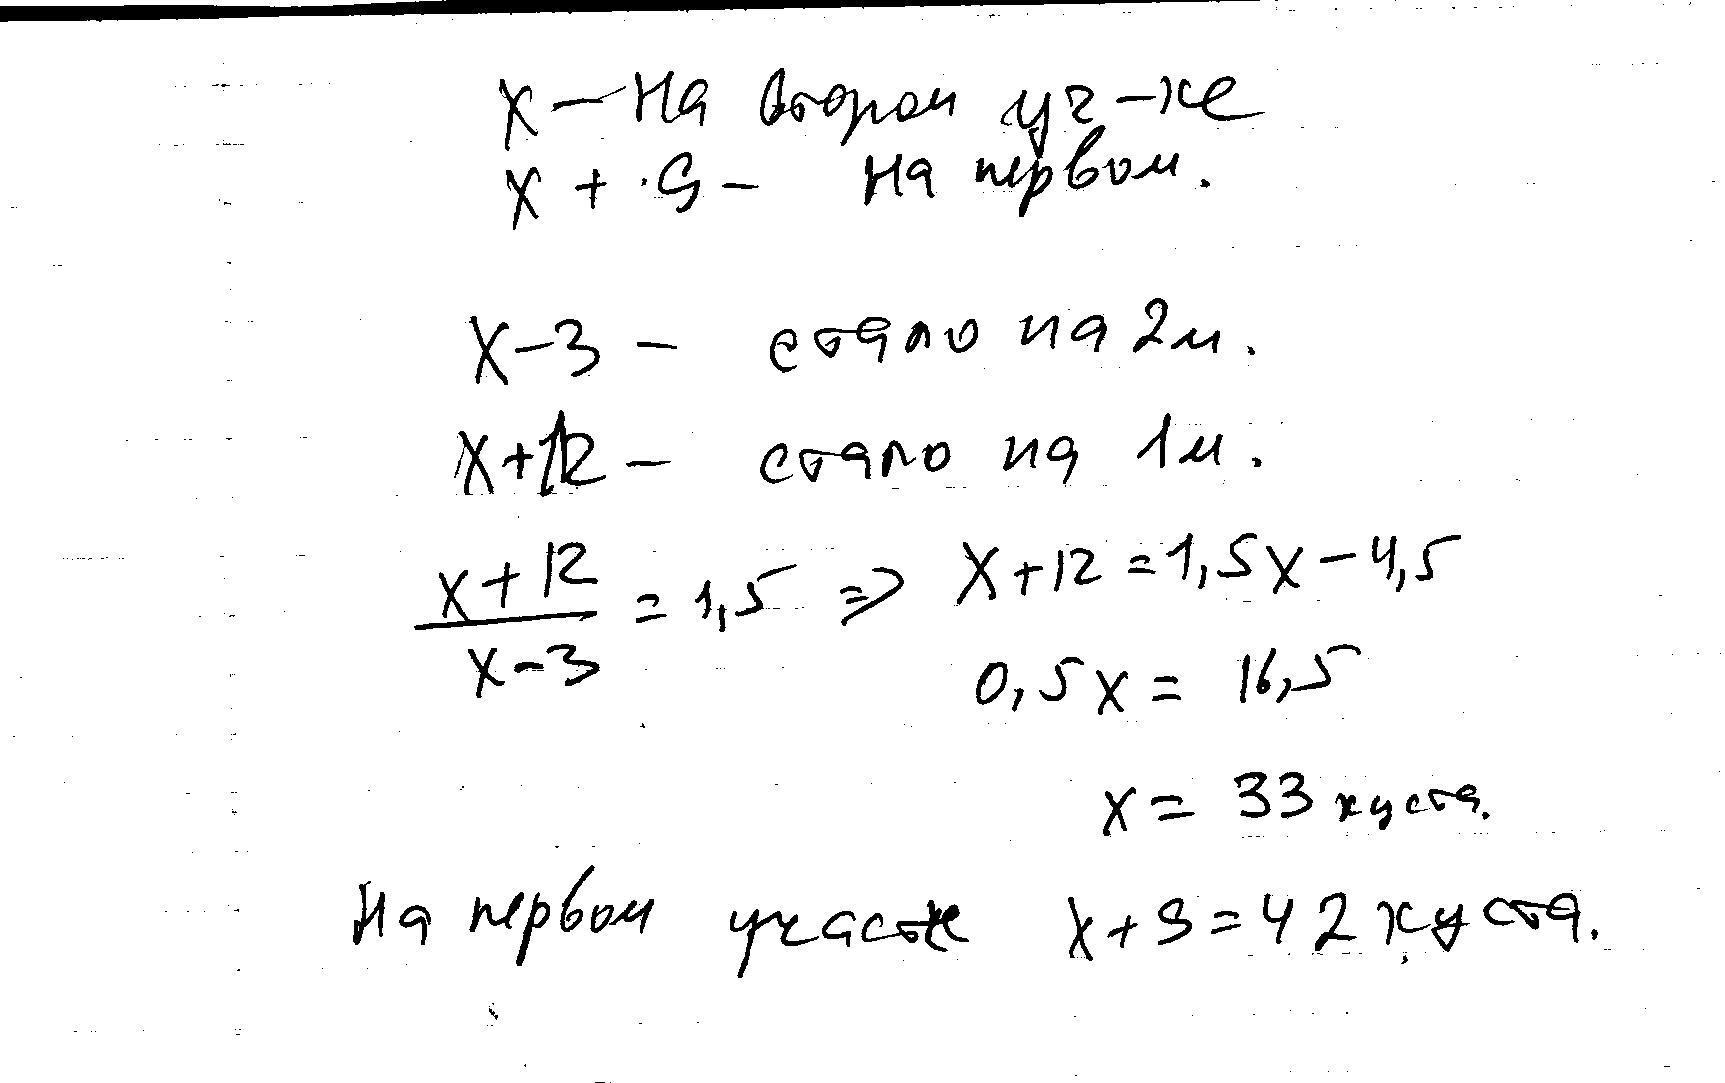 x – на втором уч-ке
x + 9 – на первом.
x – 3 – стало на 2м.
x + 12 – стало на 1м.
(x + 12)/(x – 3) = 1,5 => x + 12 = 1,5x – 4,5
0,5x = 16,5
x = 33 куста.
на первом участке x + 9 = 42 куста.